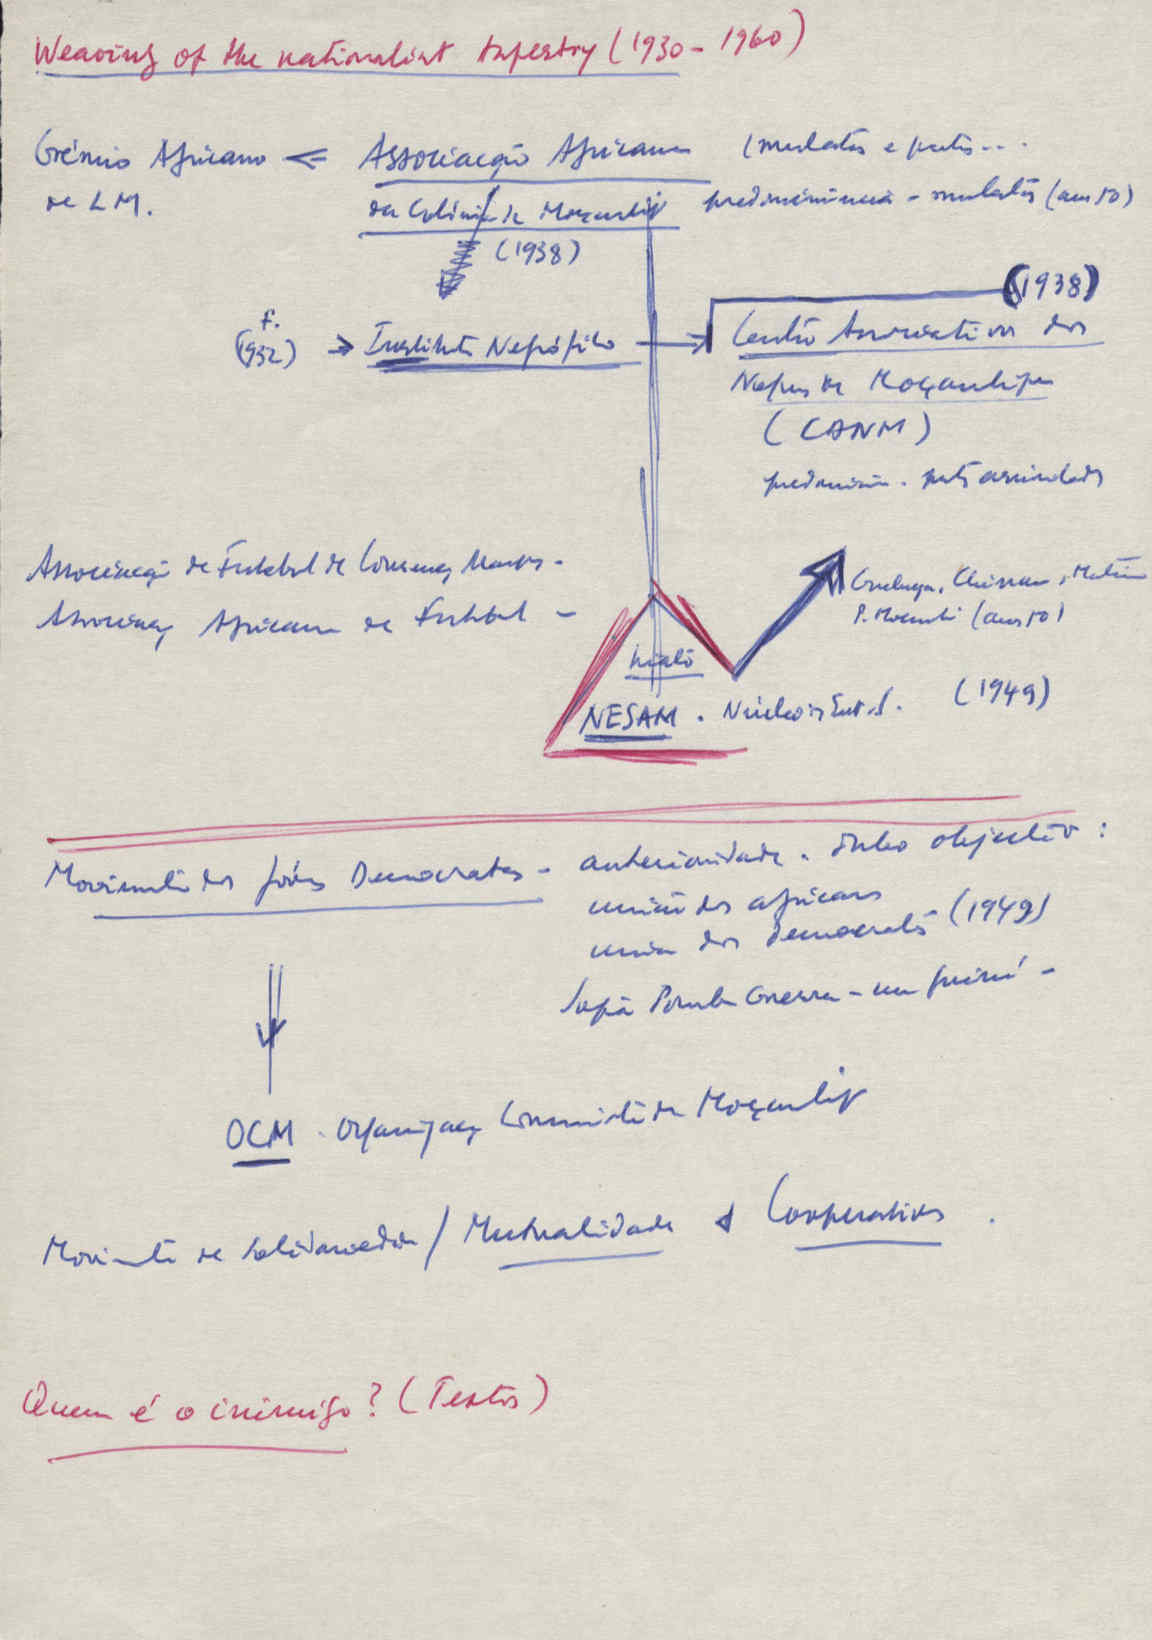 Weaving of the nationalist tapestry (1930-1960)
Grémio Africano <= Associação Africana (mulatos e pretos...
de LM. da Colónia de Moçambiq predominância - mulatos (anos 50)
(1938)
(1938)
f.
(1932) -> Instituto Negrófilo -> Centro Associativo dos
Negros de Moçambique
(CANM)
predomin. pretos assimilados
Associação de Futebol de Lourenço Marques -
Associação Africana de Futebol -
Chissano,
P. Mocumbi (anos 50)
NESAM. Núcleo (1949)
Movimento dos Jovens Democratas - anterioridade. objectivo:
união dos africanos
união dos democratas (1949)
Sofia Pomba Guerra -
OCM. Organização Comunista de Moçambiq
Movimento de Solidariedade / Mutualidade & Cooperativas.
Quem é o inimigo? (Textos)